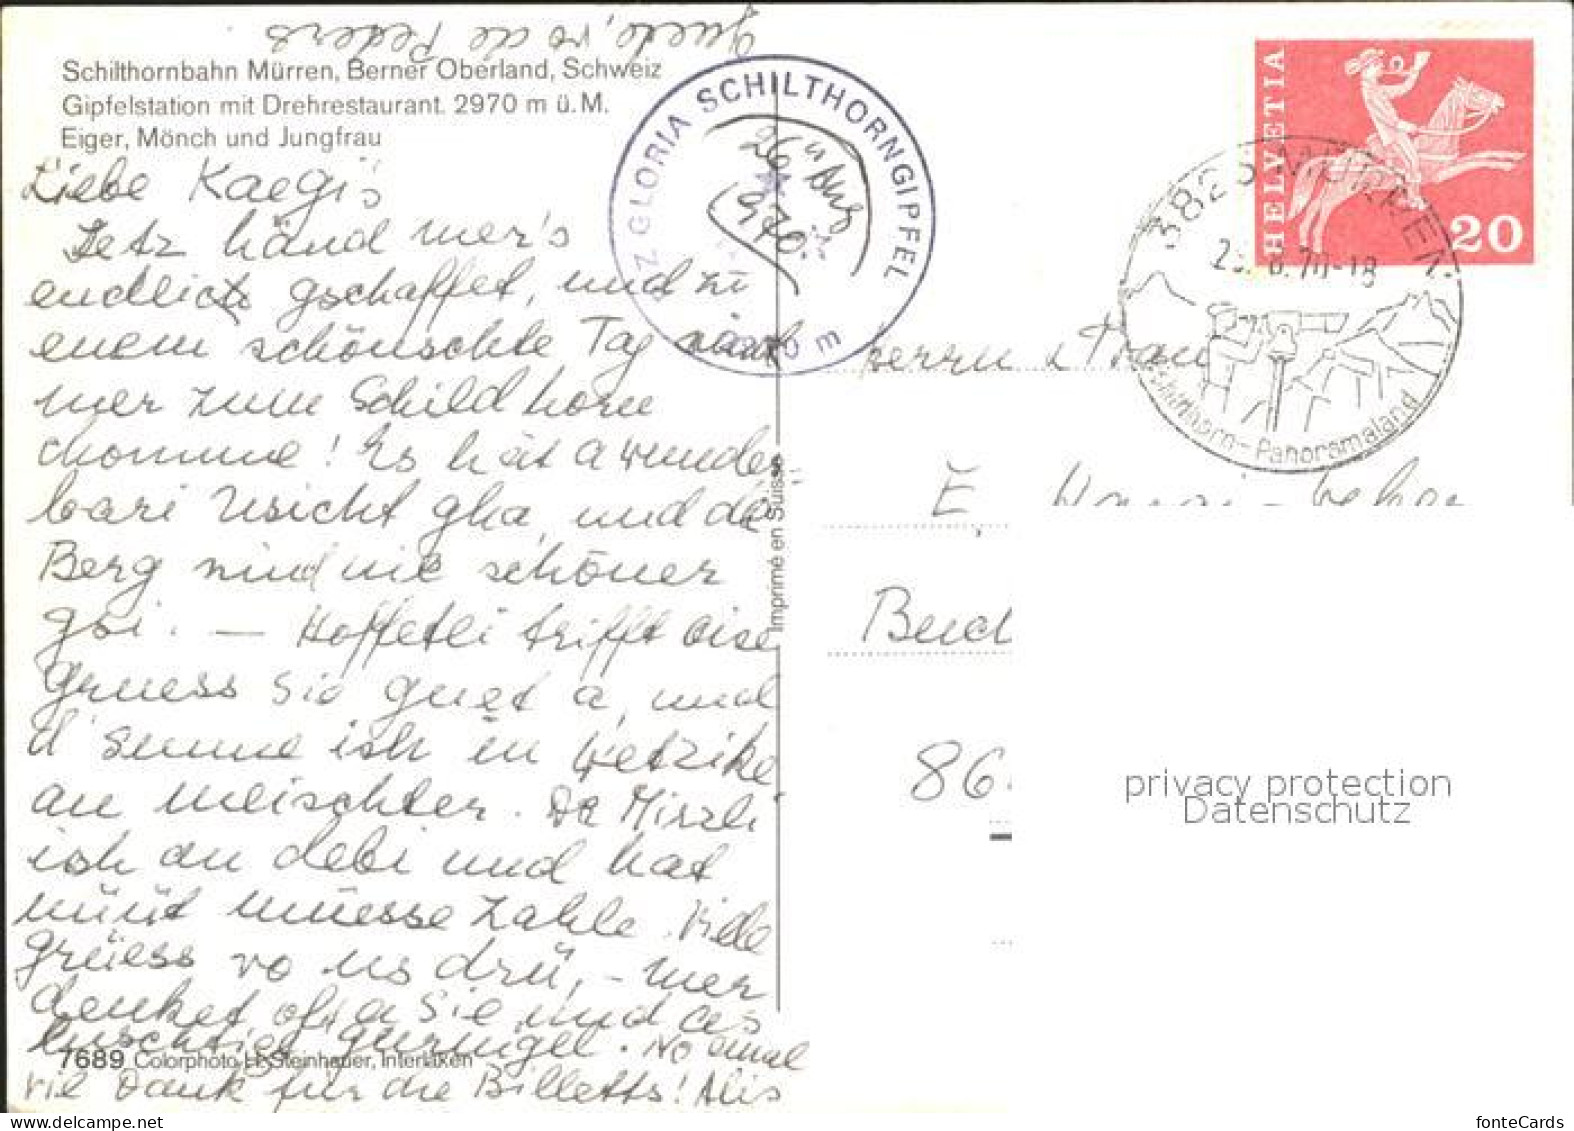 Schilthornbahn Mürren, Berner Oberland, Schweiz
Gipfelstation mit Drehrestaurant. 2970 m ü.M.
Eiger, Mönch und Jungfrau
Liebe Kaegi's
Jetz händ mer's
endlich gschaffet, und zu
enem schönschte Tag sind
mer zum Schildhorn
chomme! Es hät a wunder-
bari Usicht gha, und dä
Berg sind nie schöner
gsi. — Hoffetli trifft eise
Gruess Sie guet a, und
d'Sunne isch in Wetzike
am meischter. Da Mirzli
isch au debi und hat
nüüt müesse zahle. Viele
grüess vo us drü, - mer
denket oft a Sie und as
luschtige. No emal
viel Dank für die Billetts! Alis
guete, vo de Peders
7689 Colorphoto H. Steinhauer, Interlaken
Imprimé en Suisse
PIZ GLORIA SCHILTHORNGIPFEL
2970 m
26. Aug.
1970.
HELVETIA
20
3825 MÜRREN
.8.70-18
Schilthorn-Panoramaland
Herrn & Frau
E.
Buch
86
privacy protection
Datenschutz
fonteCards